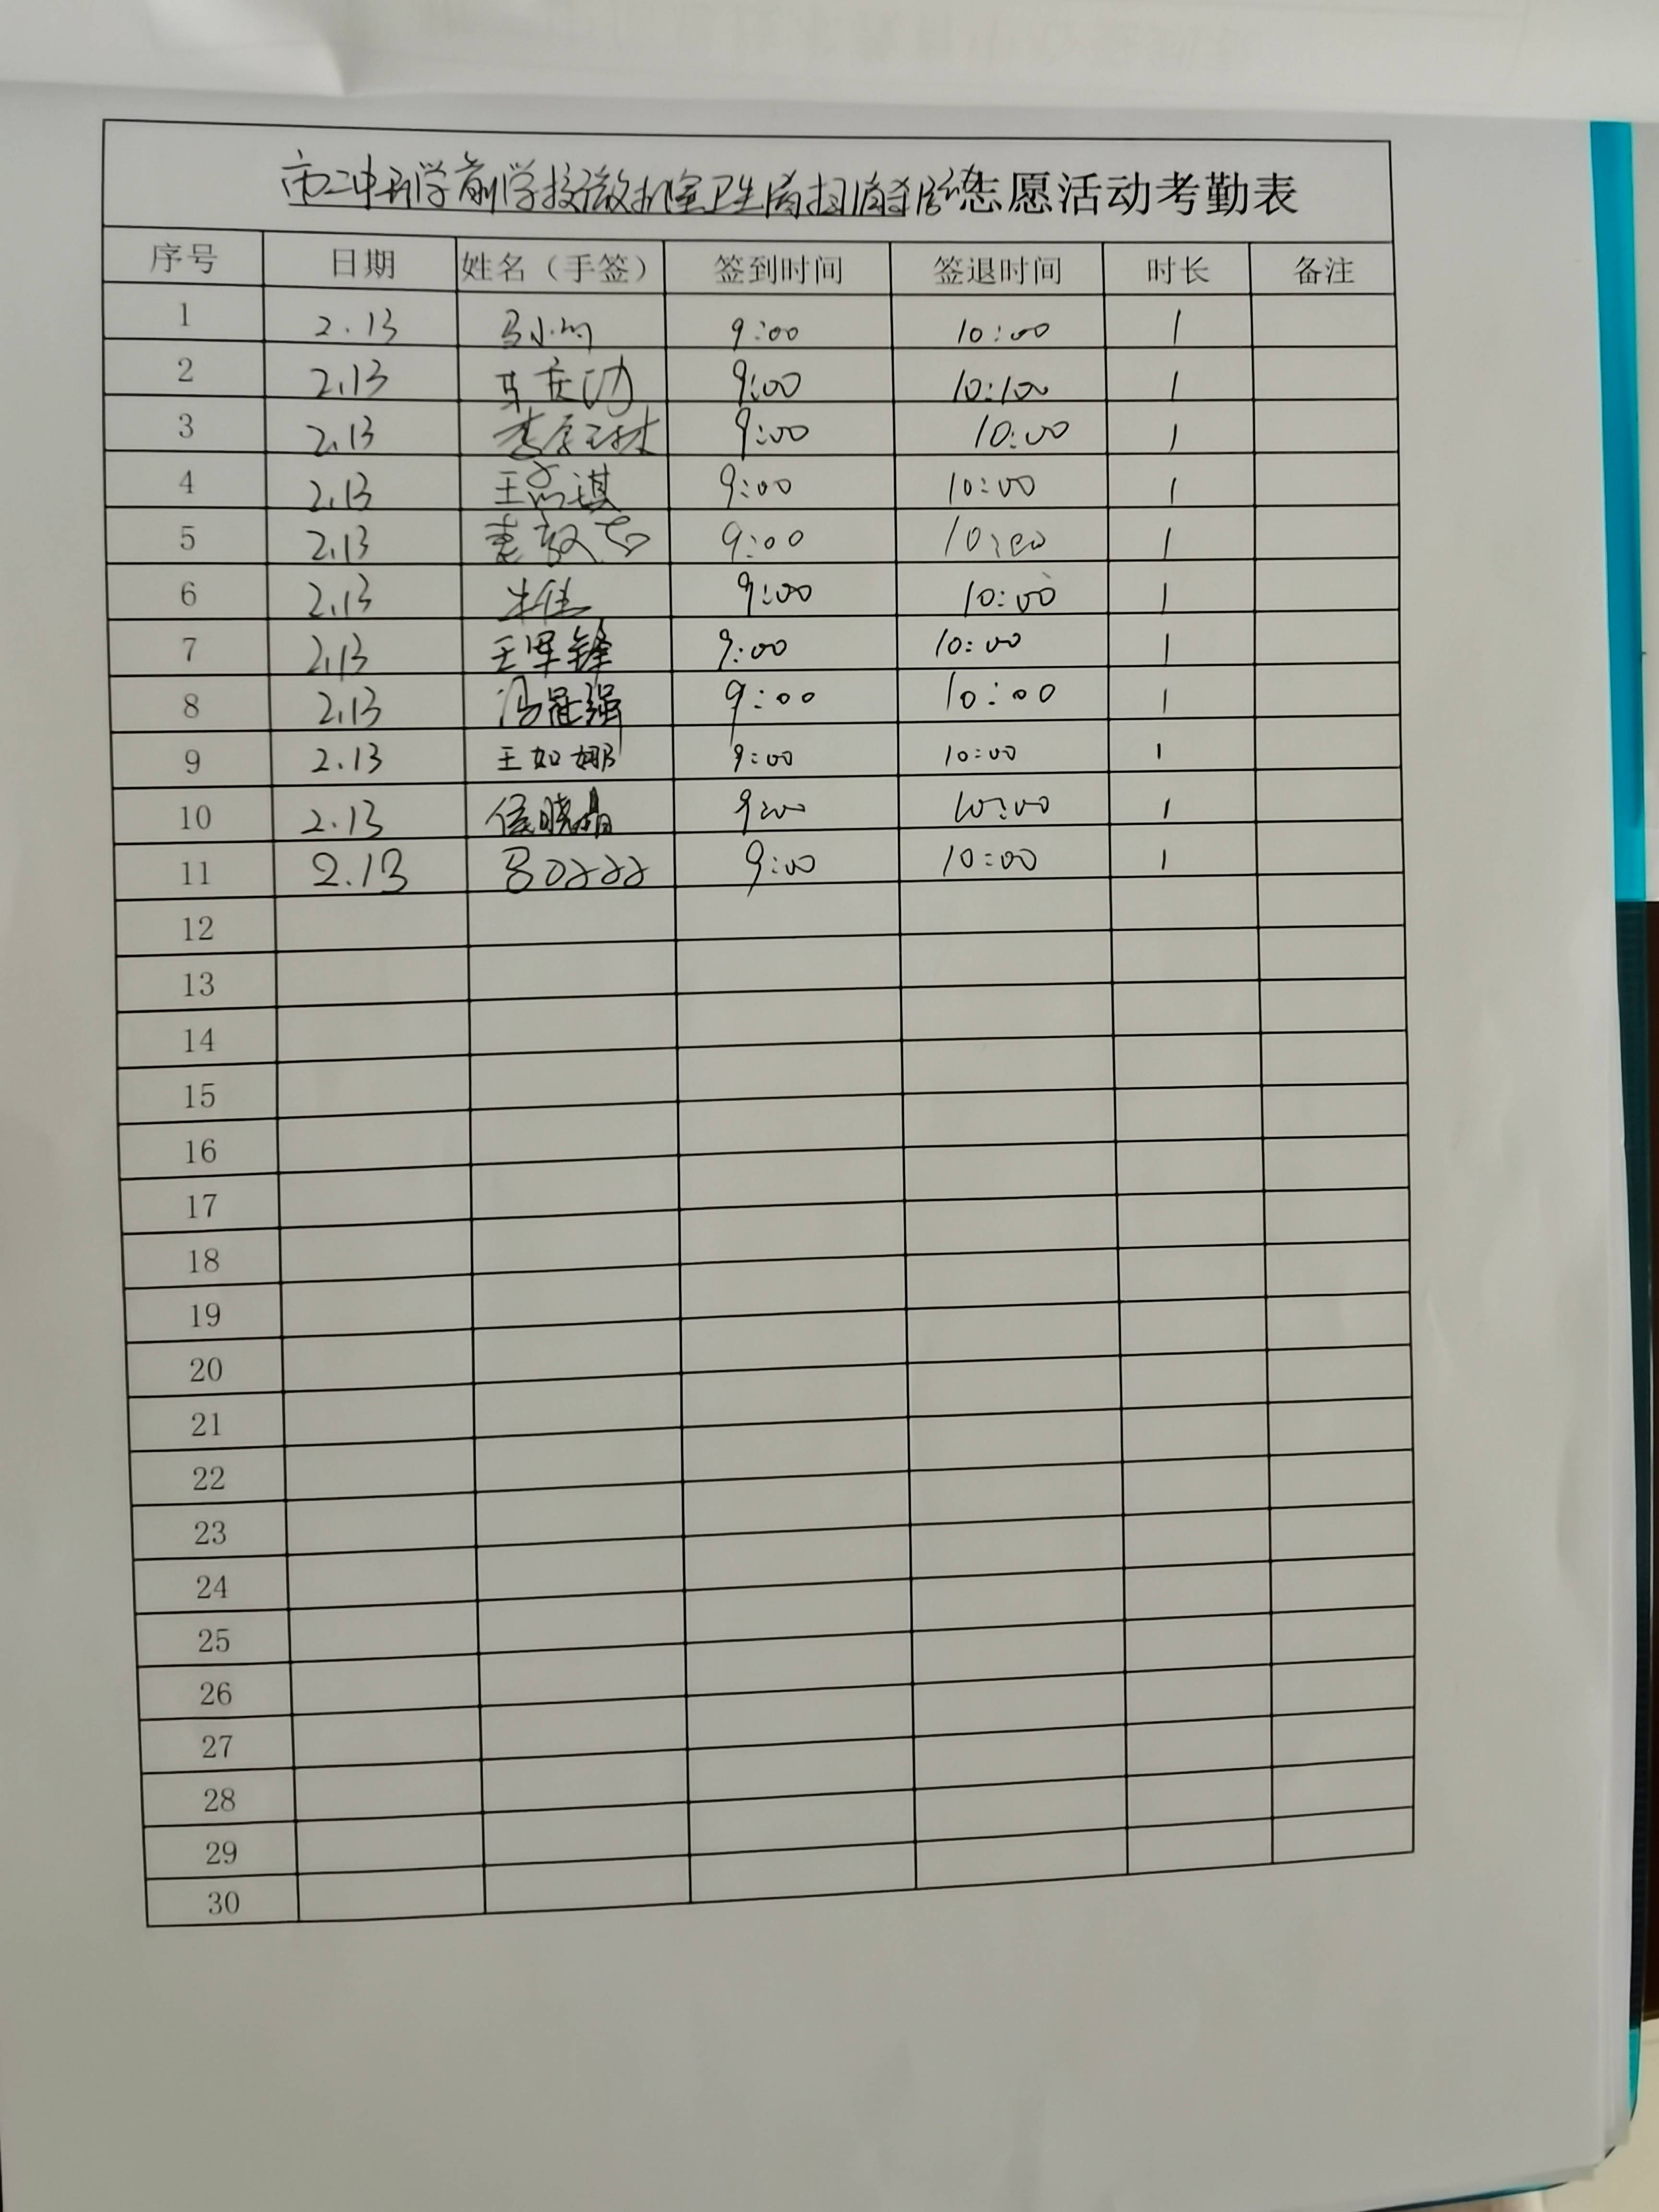 市二中开学前学校微机室卫生清扫志愿活动考勤表
序号 日期 姓名（手签） 签到时间 签退时间 时长 备注
1 2.13 9:00 10:00 1
2 2.13 9:00 10:00 1
3 2.13 9:00 10:00 1
4 2.13 9:00 10:00 1
5 2.13 9:00 10:00 1
6 2.13 9:00 10:00 1
7 2.13 王军锋 9:00 10:00 1
8 2.13 9:00 10:00 1
9 2.13 王如娜 9:00 10:00 1
10 2.13 侯晓娟 9:00 10:00 1
11 2.13 9:00 10:00 1
12
13
14
15
16
17
18
19
20
21
22
23
24
25
26
27
28
29
30